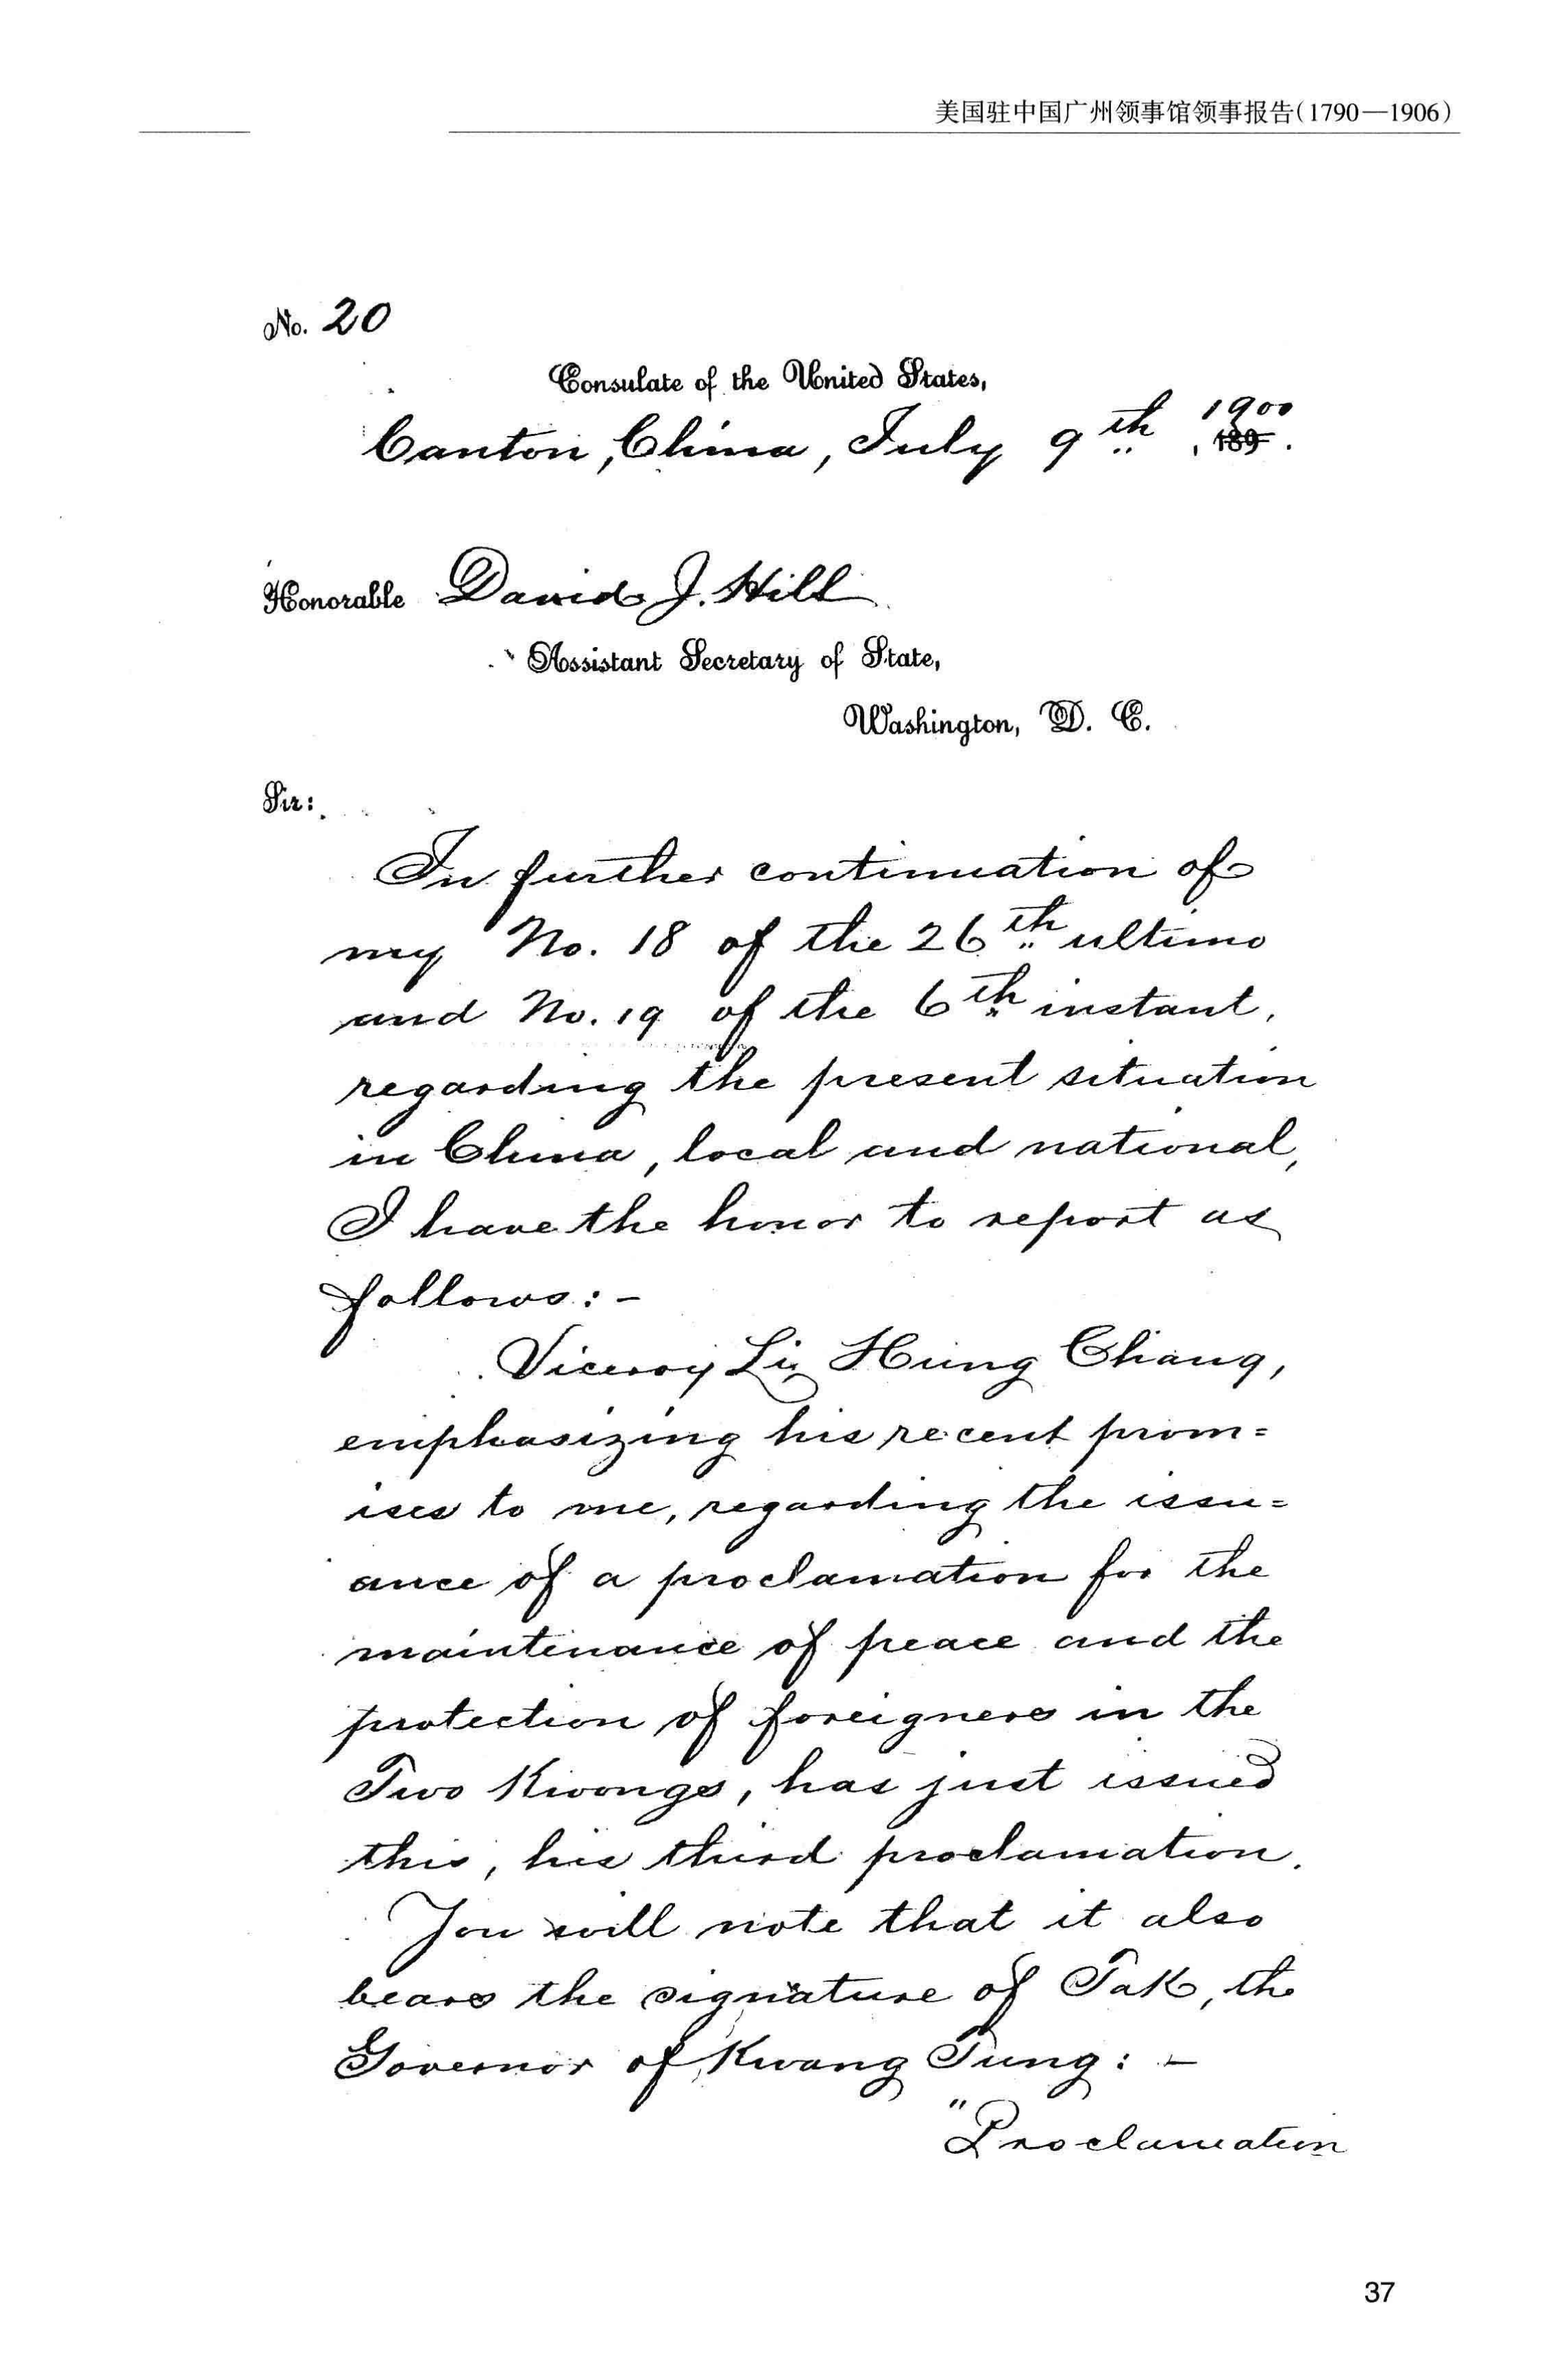 美国驻中国广州领事馆领事报告(1790—1906)
No. 20
Consulate of the United States,
Canton, China, July 9th 1900
189 .
Honorable David J. Hill
Assistant Secretary of State,
Washington, D. C.
Sir:
In further continuation of
my No. 18 of the 26th ultimo
and No. 19 of the 6th instant,
regarding the present situation
in China, local and national,
I have the honor to report as
follows: -
Viceroy Li Hung Chang,
emphasizing his recent prom=
ises to me, regarding the issu=
ance of a proclamation for the
maintenance of peace and the
protection of foreigners in the
Two Kwongs, has just issued
this, his third proclamation.
You will note that it also
bears the signature of Tak, the
Governor of Kwang Tung: -
"Proclamation
37